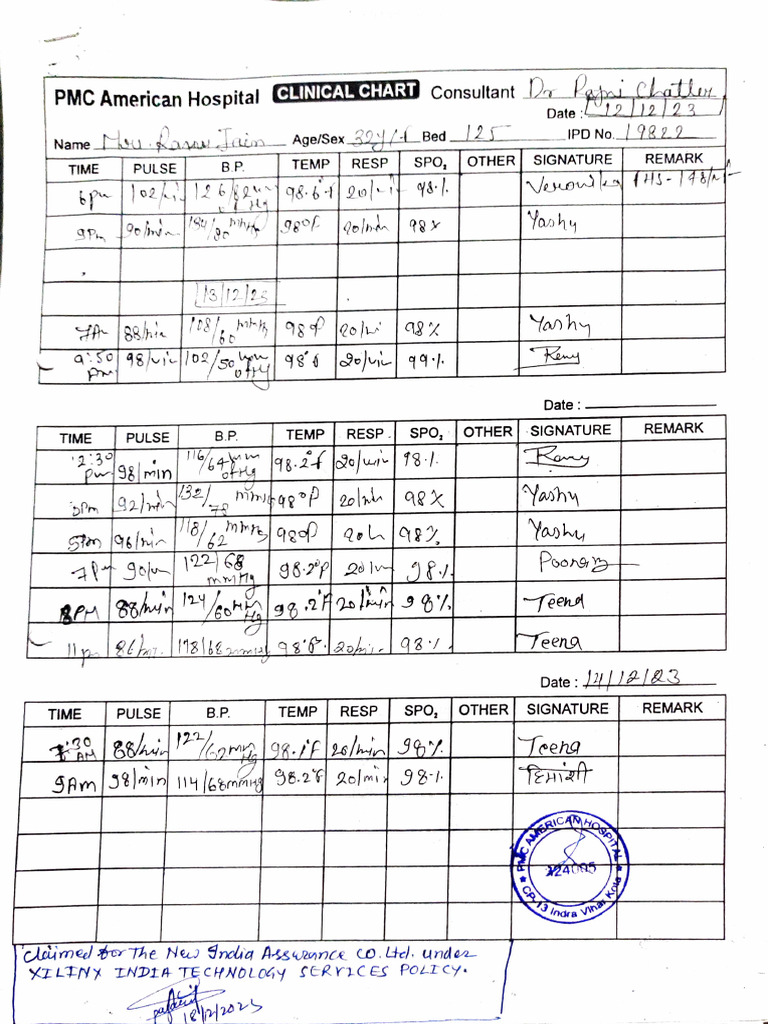 PMC American Hospital CLINICAL CHART Consultant Dr
Date : 12/12/23
Name Jain Age/Sex 32y/f Bed 125 IPD No. 19822
TIME PULSE B.P. TEMP RESP SPO₂ OTHER SIGNATURE REMARK
6pm 102/min 98.6°f 20/min 98.1. Veronika
9pm 90/min mmHg 98°f 20/min 98% Yashu
13/12/23
7A 88/min 108/60 mmHg 98°f 20/mi 98% Yashy
9:50 Am 98/min 102/50 mm ofHg 98°f 20/min 99.1.
Date :
TIME PULSE B.P. TEMP RESP SPO₂ OTHER SIGNATURE REMARK
12:30 pm 98/min 116/64 mm ofHg 98.2°f 20/min 98.1.
3pm 92/min 132/78 mmHg 98°f 20/min 98% Yashu
5pm 96/min 118/62 mmHg 98°f 20 98% Yashu
7pm 90/m 122/68 mmHg 98.2°f 20/m 98.1. Poonam
8PM 88/min 124/60 mm Hg 98.2°F 20/min 98% Teena
11pm 86/m 118/68 mmHg 98°F 20/min 98.1. Teena
Date : 14/12/23
TIME PULSE B.P. TEMP RESP SPO₂ OTHER SIGNATURE REMARK
:30 AM 88/min 122/62 mm Hg 98.1°F 20/min 98% Teena
9Am 98/min 114/68mmHg 98.2°f 20/min 98.1. हिमांशी
PMC AMERICAN HOSPITAL
324005
CP-13 Indra Vihar Kota
Claimed for The New India Assurance CO. Ltd. under
XILINX INDIA TECHNOLOGY SERVICES POLICY.
18/12/2023